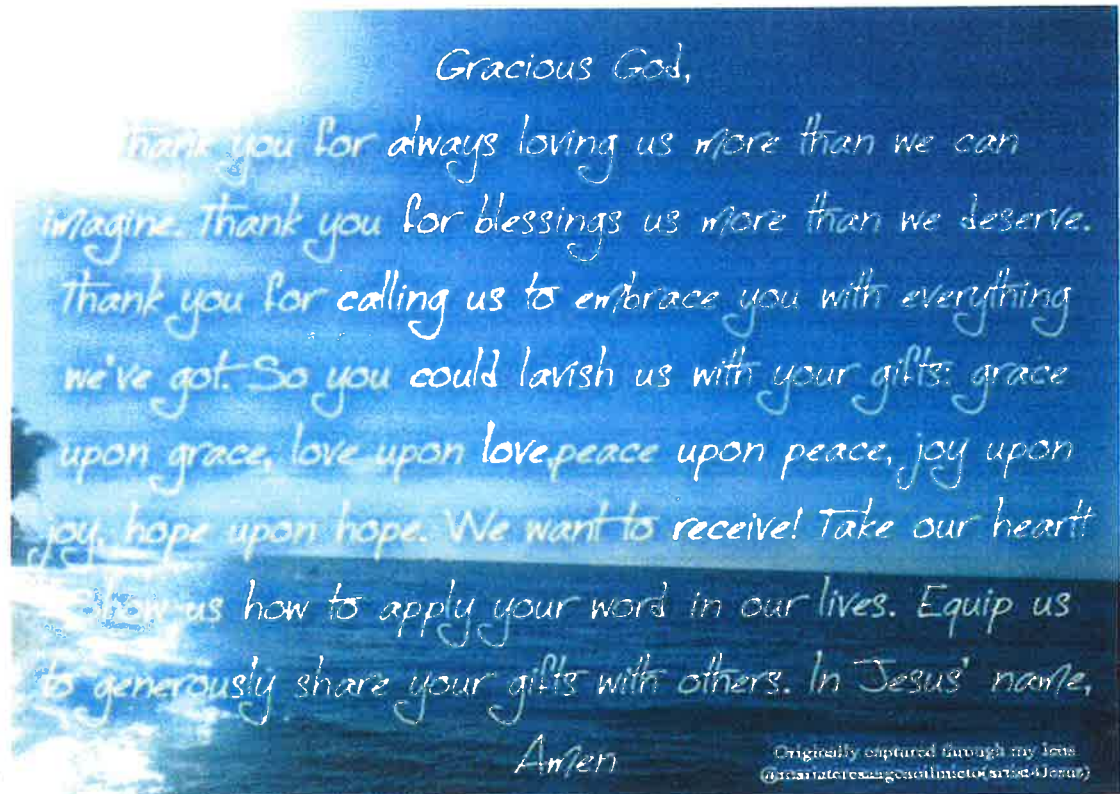 Gracious God,
Thank you for always loving us more than we can
imagine. Thank you for blessings us more than we deserve.
Thank you for calling us to embrace you with everything
we've got. So you could lavish us with your gifts: grace
upon grace, love upon love,peace upon peace, joy upon
joy, hope upon hope. We want to receive! Take our heart!
Show us how to apply your word in our lives. Equip us
to generously share your gifts with others. In Jesus' name,
Amen
Originally captured through my lens